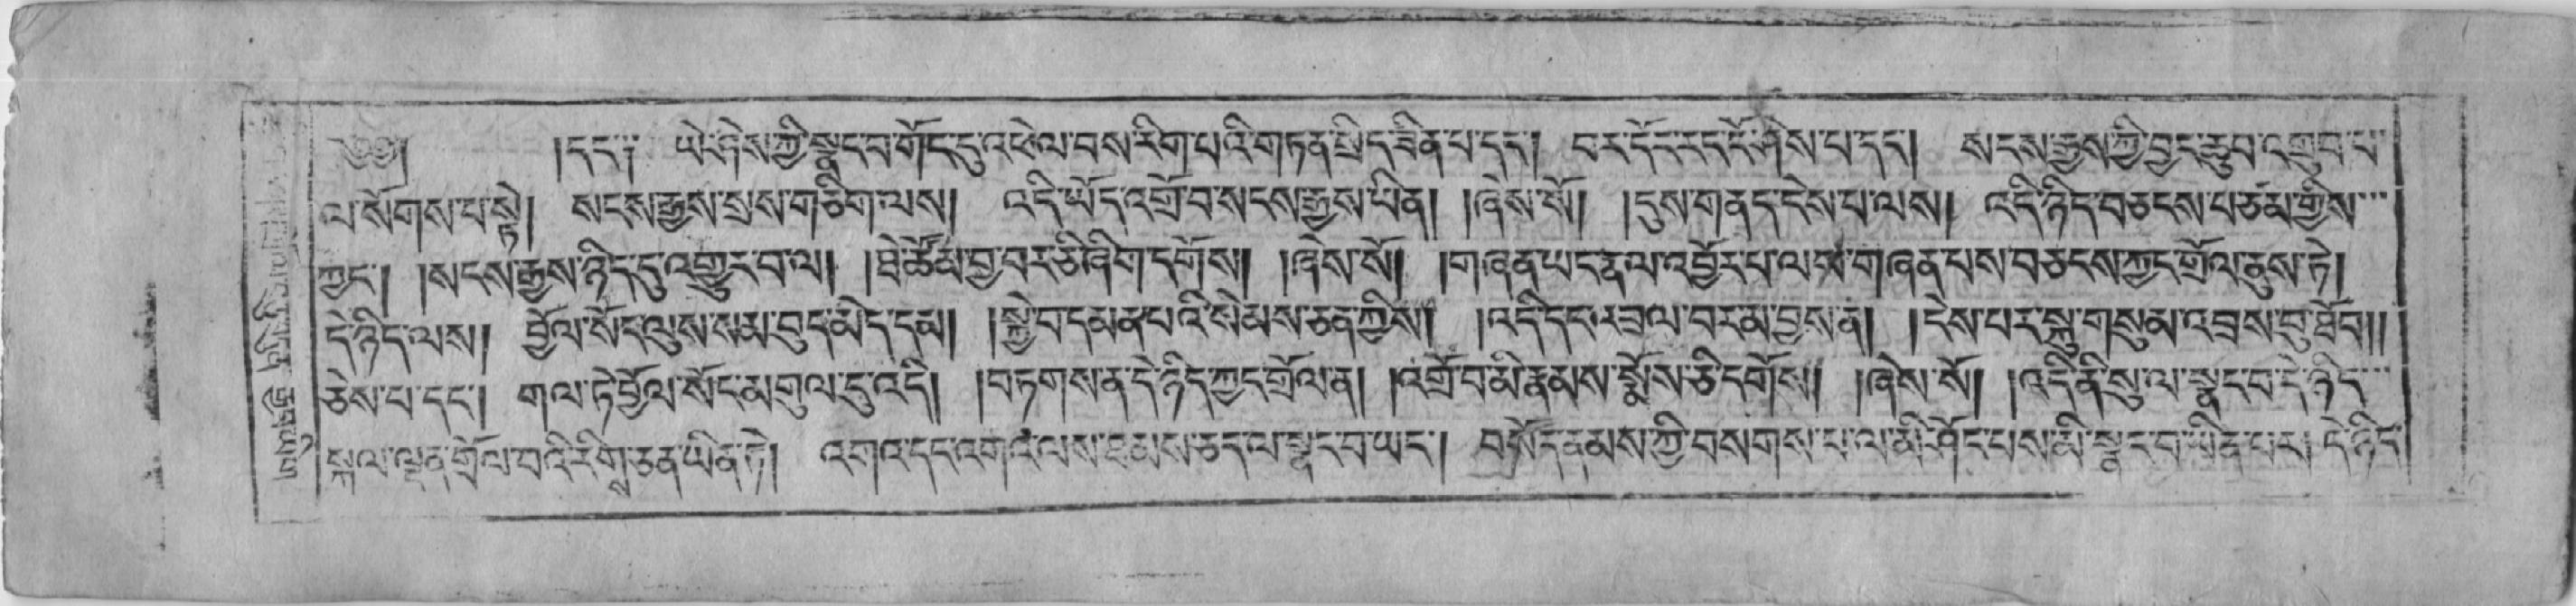 ༄༅། །དང་་ ཡེ་ཤེས་ཀྱི་སྣང་བ་གོང་དུ་འཕེལ་བས་རིག་པའི་གཏན་སྲིད་ཟིན་པ་དང༌། བར་དོར་རང་ངོ་ཤེས་པ་དང༌། སངས་རྒྱས་ཀྱི་བྱང་ཆུབ་འགྲུབ་པ་
ལ་སོགས་པ་སྟེ། སངས་རྒྱས་སྲས་གཅིག་ལས། འདི་ཡོད་འགྲོ་བ་སངས་རྒྱས་ཡིན། །ཞེས་སོ། །དུས་གནད་ངེས་པ་ལས། འདི་ཉིད་བཅངས་པ་ཙམ་གྱིས་་་
ཀྱང༌། །སངས་རྒྱས་ཉིད་དུ་འགྱུར་བ་ལ། །ཐེ་ཚོམ་བྱ་བར་ཅི་ཞིག་དགོས། །ཞེས་སོ། །གཞན་ཡང་རྣལ་འབྱོར་པ་ལས་གཞན་པས་བཅངས་ཀྱང་གྲོལ་ནུས་ཏེ།
དེ་ཉིད་ལས། བྱོལ་སོང་ལུས་སམ་བུད་མེད་དམ། །སྐྱེ་བ་དམན་པའི་སེམས་ཅན་ཀྱིས། །འདི་དང་ཕྲད་བར་མ་བྱས་ན། །ངེས་པར་སྐུ་གསུམ་འབྲས་བུ་ཐོབ།།
ཅེས་པ་དང༌། གལ་ཏེ་བྱོལ་སོང་མགུལ་དུ་འདི། །བཏགས་ན་དེ་ཉིད་ཀྱང་གྲོལ་ན། །འགྲོ་བ་མི་རྣམས་སྨོས་ཅི་དགོས། །ཞེས་སོ། །འདི་ནི་སྤྲུལ་སྣང་བ་དེ་ཉིད་་་
སྐལ་ལྡན་གྲོལ་བའི་རིགས་ཅན་ཡིན་ཏེ། འགའ་དང་འགའ་ལས་ཐམས་ཅད་ལ་སྣང་བ་ཡང༌། བསོད་ནམས་ཀྱི་བསགས་པ་ལ་མི་ཤོང་པས་མི་སྣང་བ་ཡིན་པར། དེ་ཉིད་